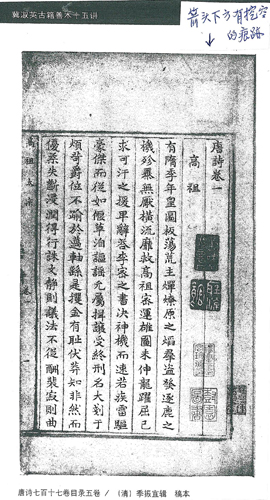 冀淑英古籍善本十五讲
箭头下方有挖空
的痕路
唐詩卷一
高祖
有隋季年皇圖板蕩荒主燀燎原之焰羣盜發逐鹿之
機殄暴無厭橫流靡救高祖密運雄圖未伸龍躍屈己
求可汗之援卑辭答李密之書決神機而速若疾雷驅
豪傑而從如偃草洎謳謠允屬揖讓受終刑名大剗于
煩苛爵位不踰於適軸繇是攫金有恥伏莽知非然而
優柔失斷浸潤得行誅文靜則議法不從酬裴寂則曲
唐诗七百十七卷目录五卷 / (清) 季振宜辑 稿本